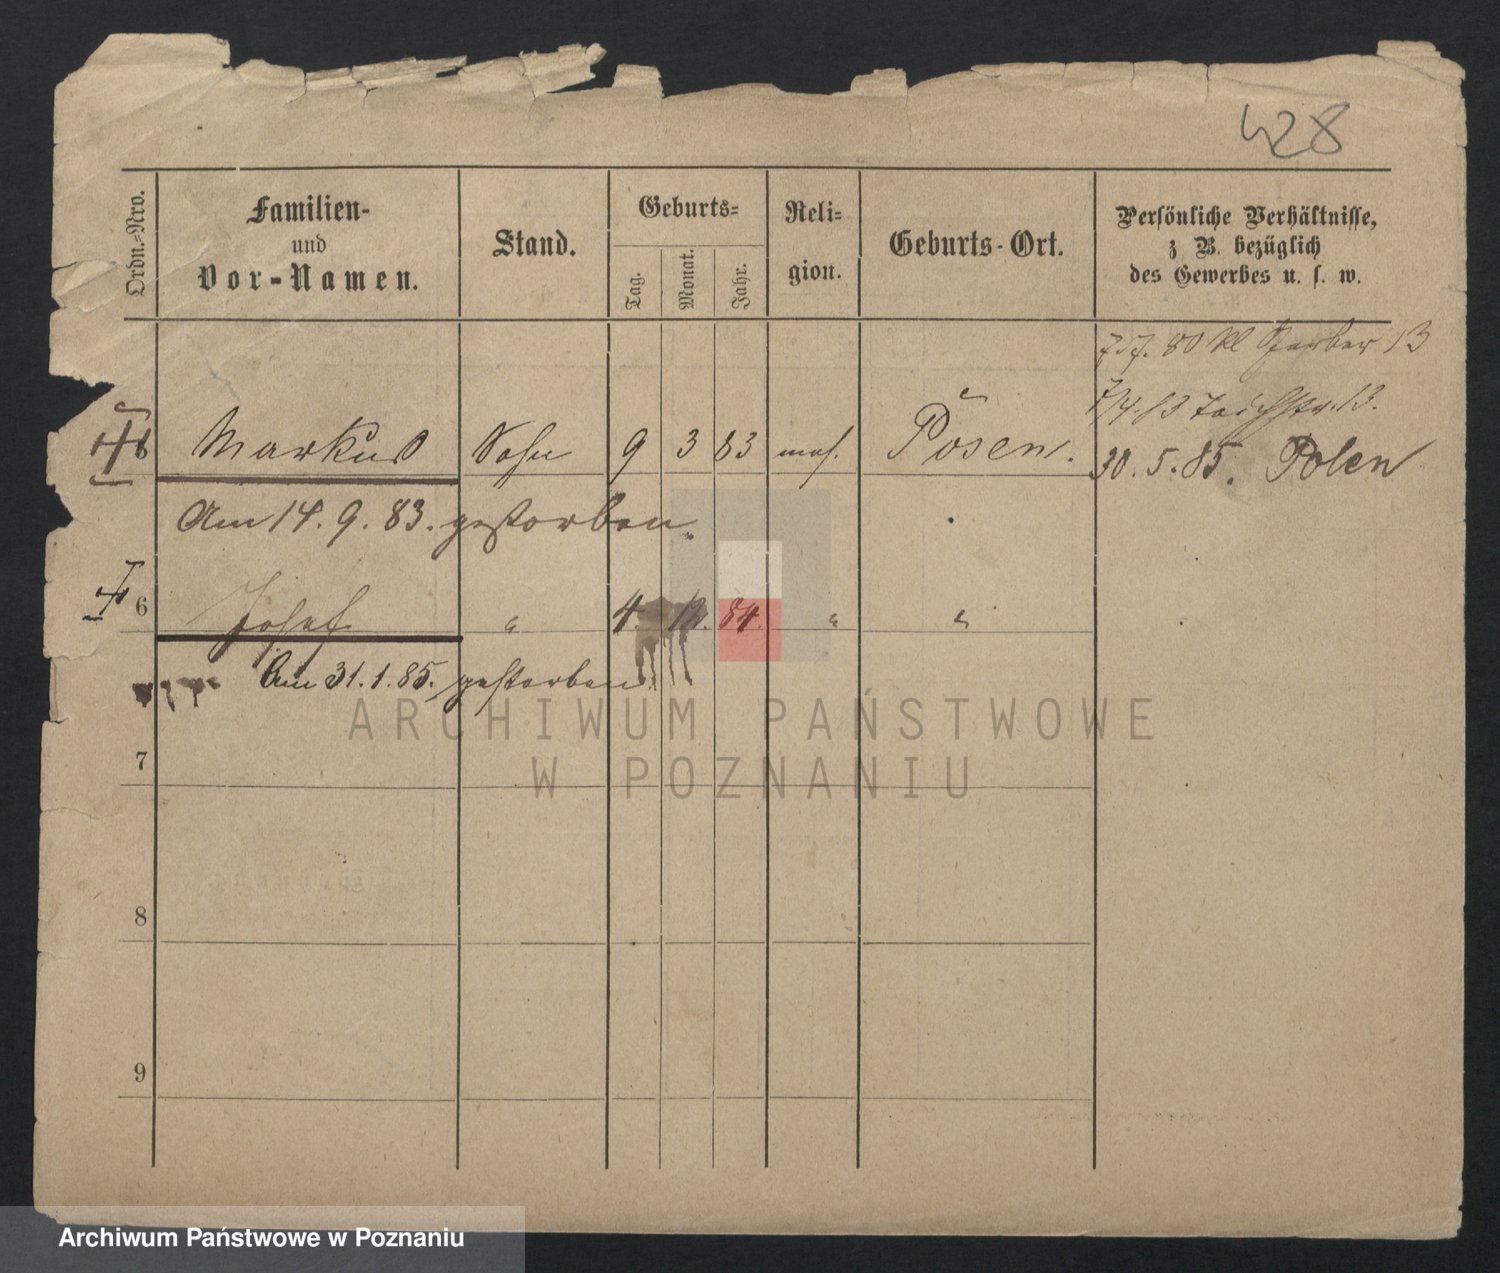 428
Ordn.-Nro.
Familien-
und
Vor-Namen.
Stand.
Geburts-
Tag.
Monat.
Jahr.
Reli-
gion.
Geburts-Ort.
Persönliche Verhältnisse,
z B. bezüglich
des Gewerbes u. s. w.
80 kl Gerber 13
7/4.83 Teichstr. 13.
Markus Sohn 9 3 83 mos. Posen. 30.5.85. Polen
Am 14.9.83. gestorben.
6 Josef " 4. 12. 84. " "
Am 31.1.85. gestorben.
7
8
9
ARCHIWUM PAŃSTWOWE
W POZNANIU
Archiwum Państwowe w Poznaniu